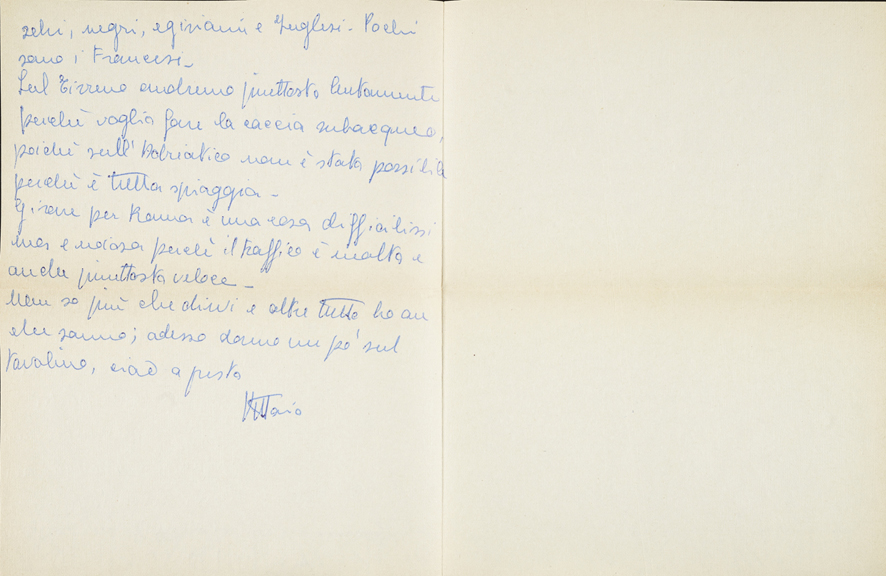 zchi, negri, egiziani e Inglesi - Pochi
sono i Francesi -
Sul Tirreno andremo piuttosto lentamente
perchè voglio fare la caccia subacquea,
poichè sull'Adriatico non è stata possibile
perchè è tutta spiaggia -
Girare per Roma è una cosa difficilissi
ma e noiosa perchè il traffico è molto e
anche piuttosto veloce -
Non so più che dirvi e oltre tutto ho an
che sonno; adesso dormo un pò sul
tavolino, ciao a presto